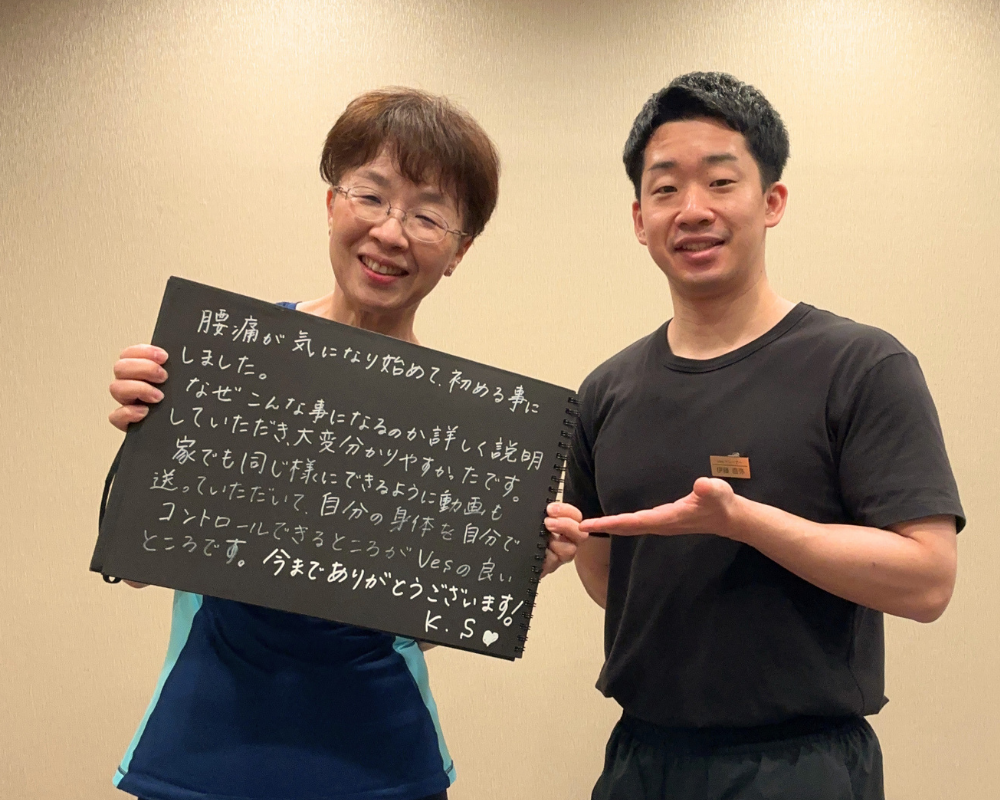 腰痛が気になり始めて、初める事に
しました。
なぜこんな事になるのか詳しく説明
していただき、大変分かりやすかったです。
家でも同じ様にできるように動画も
送っていただいて、自分の身体を自分で
コントロールできるところがVesの良い
ところです。今までありがとうございます!
K.S♥